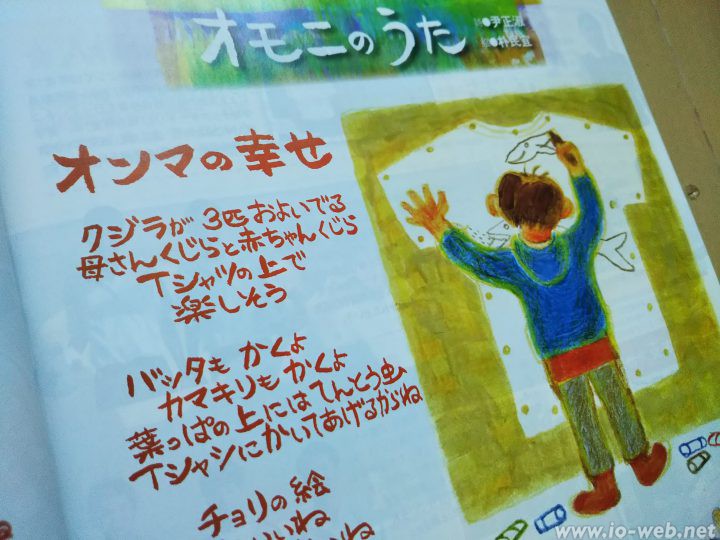 オモニのうた
●尹正淑
●朴民宜
オンマの幸せ
クジラが 3匹およいでる
母さんくじらと赤ちゃんくじら
Tシャツの上で
楽しそう
バッタも かくよ
カマキリも かくよ
葉っぱの上には てんとう虫
Tシャシにかいてあげるからね
チョリの絵
www.io-web.net